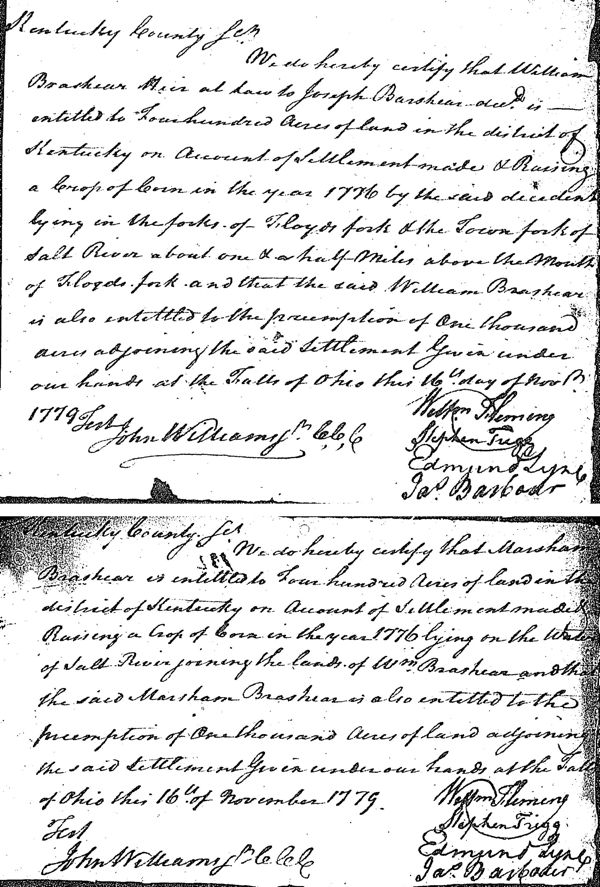 Kentucky County Sct
We do hereby certify that William
Brashear Heir at Law to Joseph Barshear decd is
entitled to Four hundred Acres of land in the district of
Kentucky on Account of Settlement made & Raising
a Crop of Corn in the year 1776 by the said decedent
lying in the forks of Floyds fork & the Town fork of
Salt River about one & a half Miles above the Mouth
of Floyds fork and that the said William Brashear
is also entitled to the preemption of One thousand
acres adjoining the said Settlement Given under
our hands at the Falls of Ohio this 16th day of Novr
1779
Test
John Williams Jr C,C,C
Wm Fleming
Stephen Trigg
Edmund Lyne
Jas Barbour
Kentucky County Sct
We do hereby certify that Marsham
Brashear is entitled to Four hundred Acres of land in the
district of Kentucky on Account of Settlement made &
Raising a Crop of Corn in the year 1776 lying on the Waters
of Salt River joining the lands of Wm Brashear and that
the said Marsham Brashear is also entitled to the
preemption of One thousand Acres of land adjoining
the said Settlement Given under our hands at the Falls
of Ohio this 16th of November 1779.
Test
John Williams Jr C C C
Wm Fleming
Stephen Trigg
Edmund Lyne
Jas Barbour